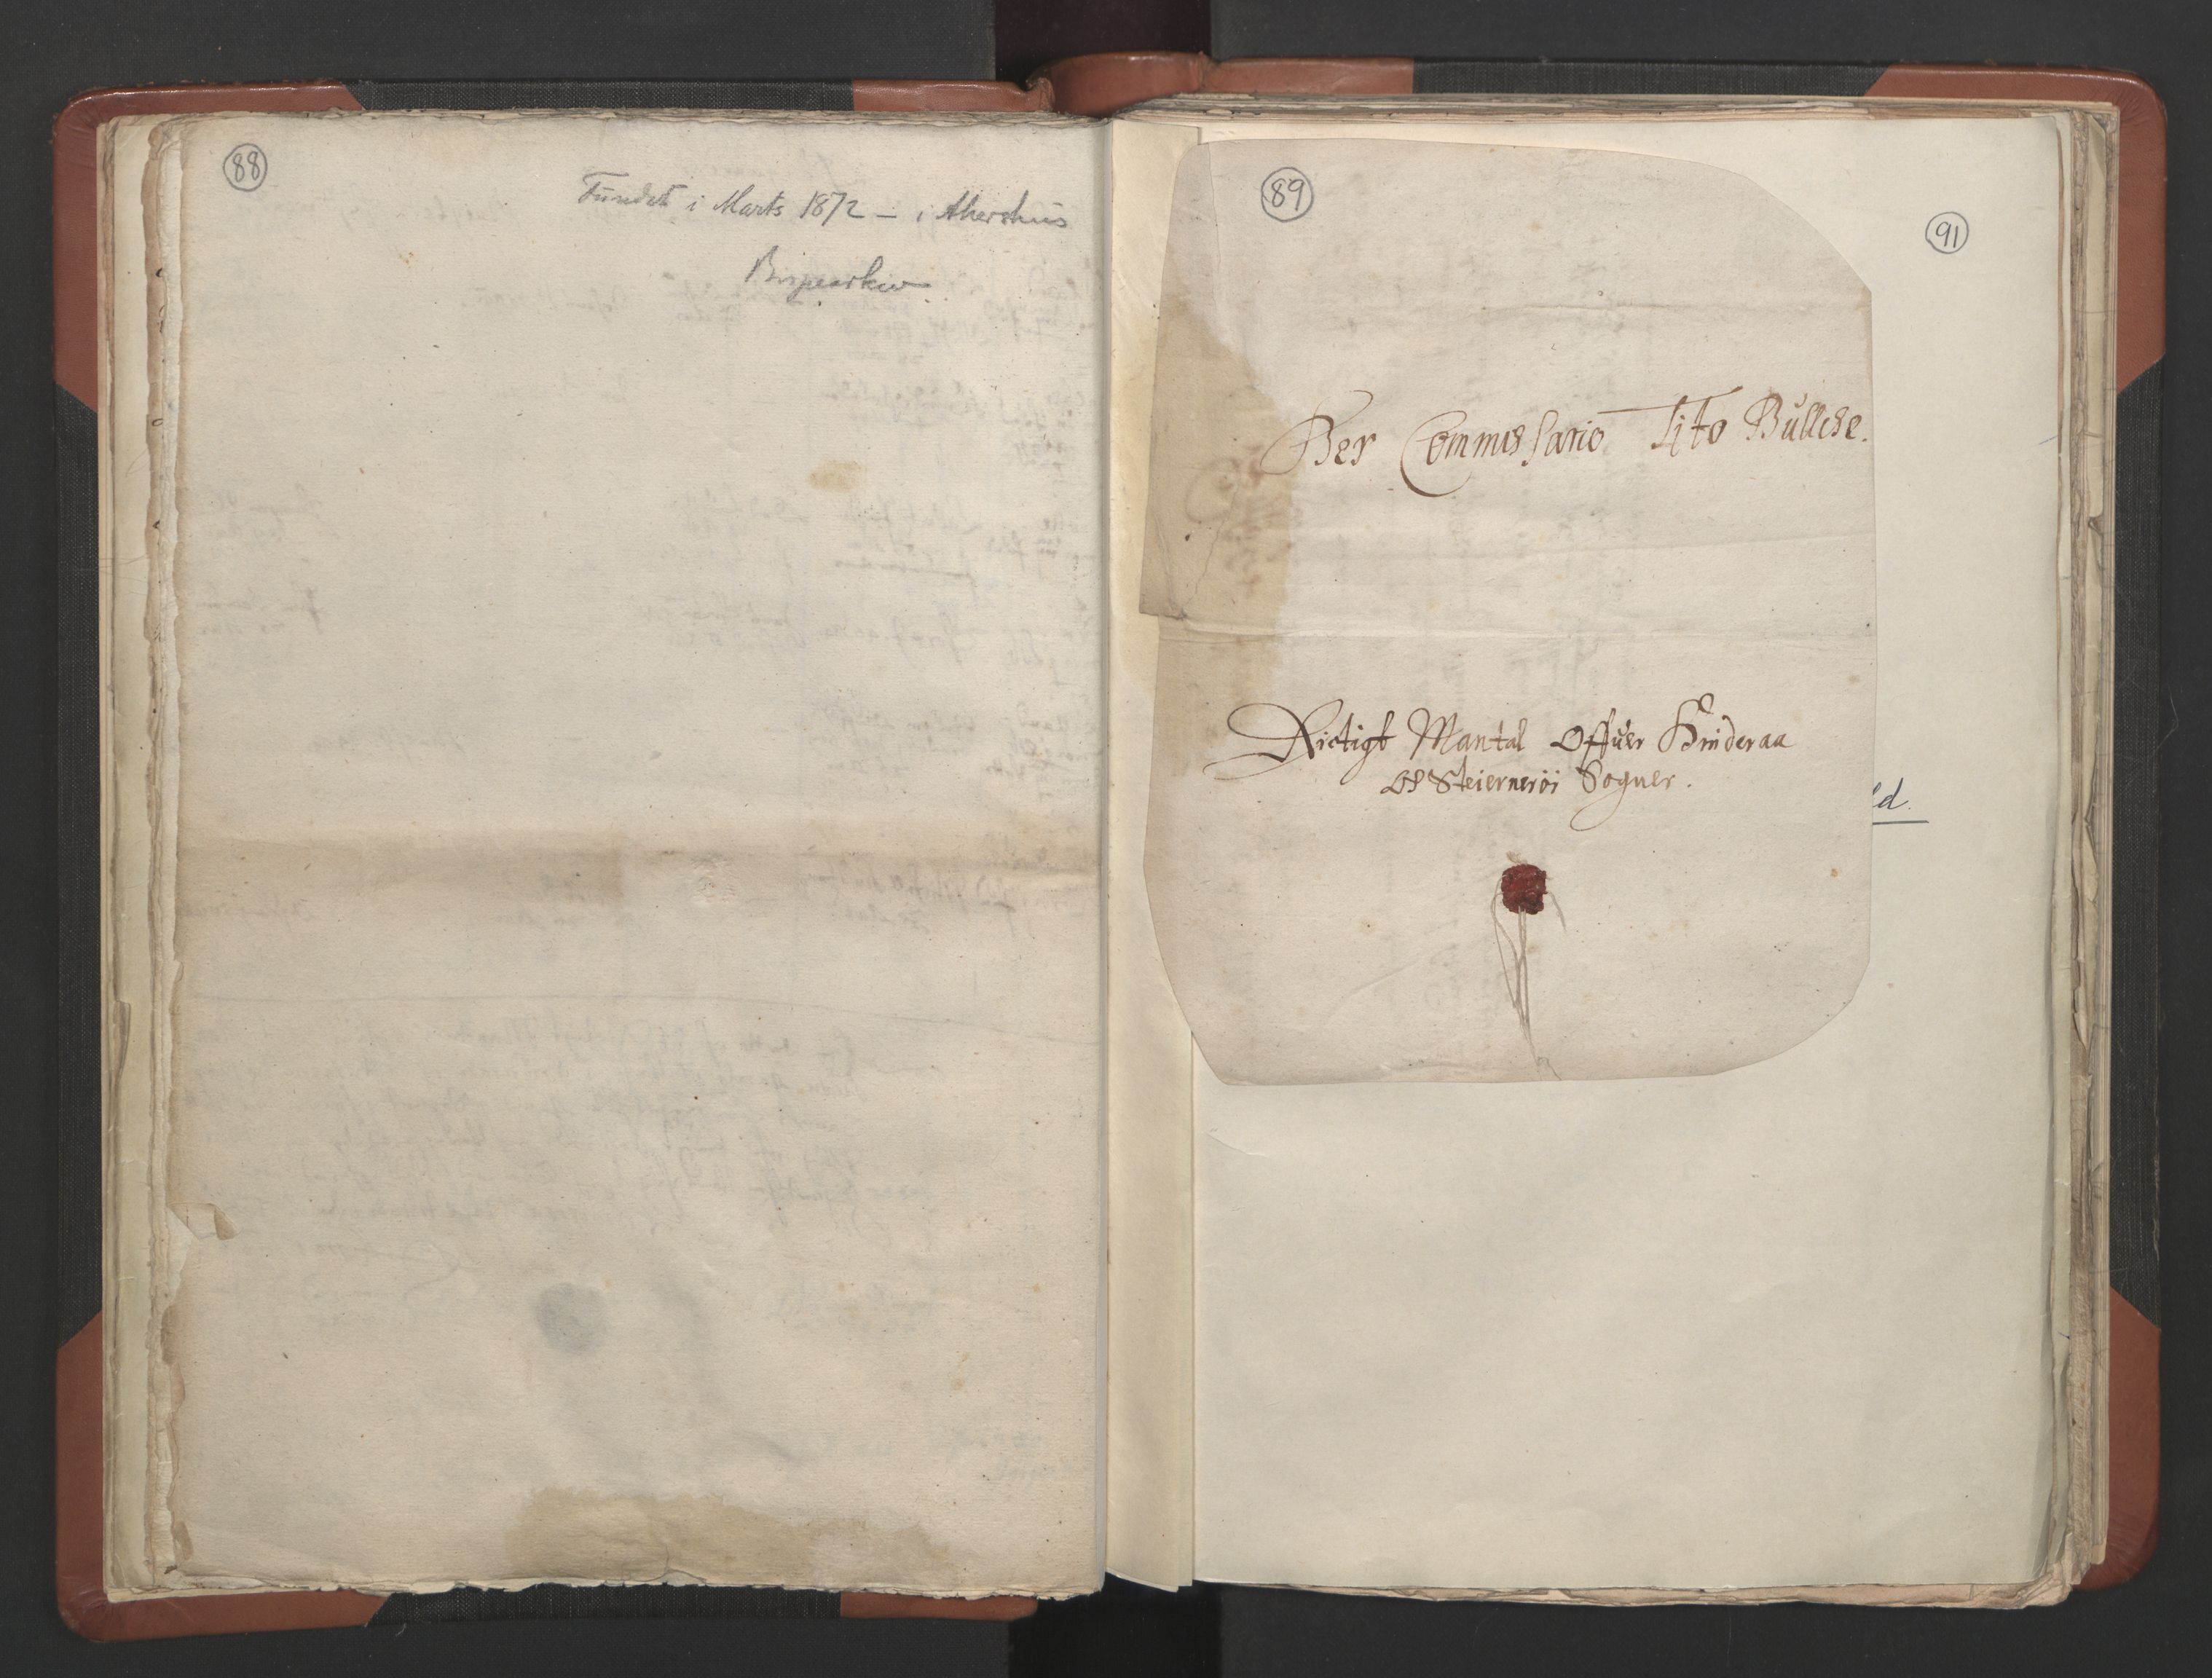 88
Fundet i Marts 1872 – i Akershus
Bispearkiv
89
91
Her Commissario Tito Bullche.
Rictigt Mantal Offuer Hinderaa
Oc Steierneröi Sogner.
ld.